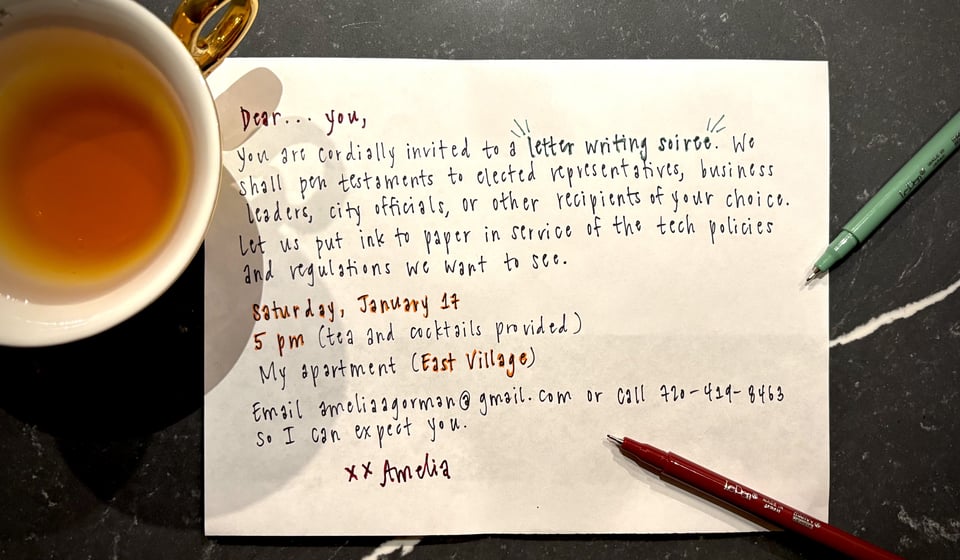 Dear... you,
You are cordially invited to a letter writing soiree. We
shall pen testaments to elected representatives, business
leaders, city officials, or other recipients of your choice.
Let us put ink to paper in service of the tech policies
and regulations we want to see.
Saturday, January 17
5 pm (tea and cocktails provided)
My apartment (East Village)
Email ameliaagorman@gmail.com or call 720-419-8463
so I can expect you.
xx Amelia
LePen